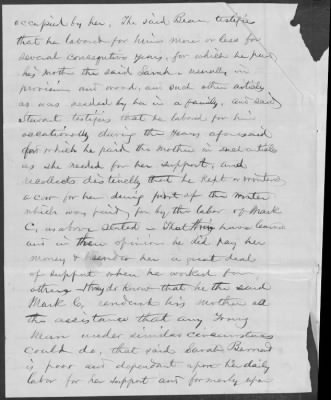 occupied by her. The said Bean testifies
that he labored for him more or less for
several consecutive years, for which he paid
his mother the said Sarah, usually in
provision and wood, and such other articles
as was needed by her in a family, and said
Stewart testifies that he labored for him
occationally during the years aforesaid
for which he paid his mother in such articles
as she needed for her support, and
recollects distinctly that he kept or wintered
a cow for her during part of the winter
which was paid for by the labor of Mark
C. as above stated - That they have learned
and in their opinion he did pay her
money & render her a great deal
of support when he worked for
others - They do know that he the said
Mark C. rendered his mother all
the assistance that any Young
Man under similar circumstances
could do, that said Sarah
is poor and dependant upon her daily
labor for her support and formerly upon